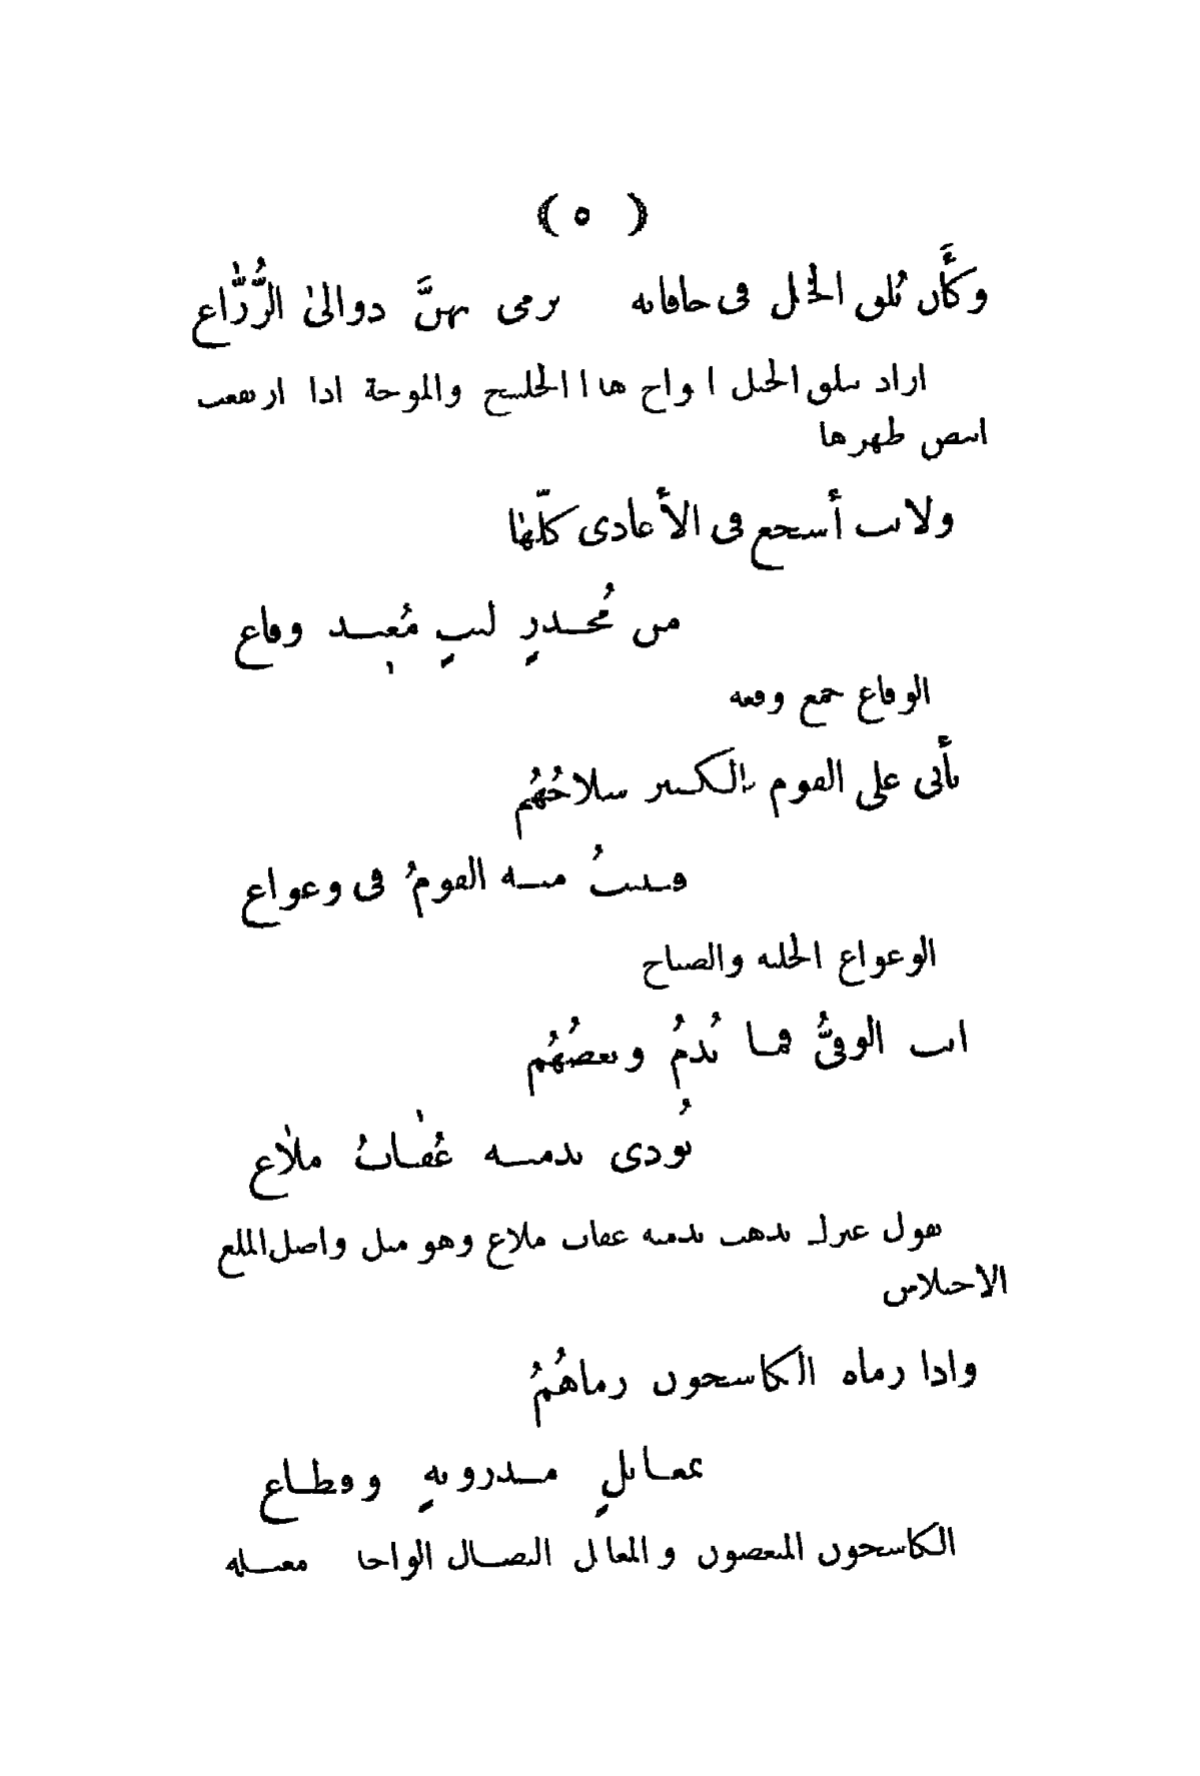 ( ٥ )
وكَأَّن بُلق الخيل فى حافاته يرمى بهنَّ دوالى الزُّرَّاع
اراد ببلق الخيل امواج هذا الخليج والموجة اذا ارتفعت
ابيض ظهرها
ولانت أشجع فى الأعادى كلّها
من مُخدرٍ ليثٍ مُعيد وقاع
الوقاع جمع وقعه
يأتى على القوم الكثير سلاحُهُم
فيبيتُ منه القومُ فى وعواع
الوعواع الجلبه والصياح
انت الوفىُّ فما تُذمُ وبعضُهُم
تُودى بذمته عُقابُ ملاع
يقول غيرك يذهب بذمته عقاب ملاع وهو مثل واصل الملع
الاختلاس
واذا رماه الكاشحون رماهُمُ
بمعابلٍ مذروبةٍ وقطاع
الكاشحون المبغضون والمعابل النصال الواحدة معبله